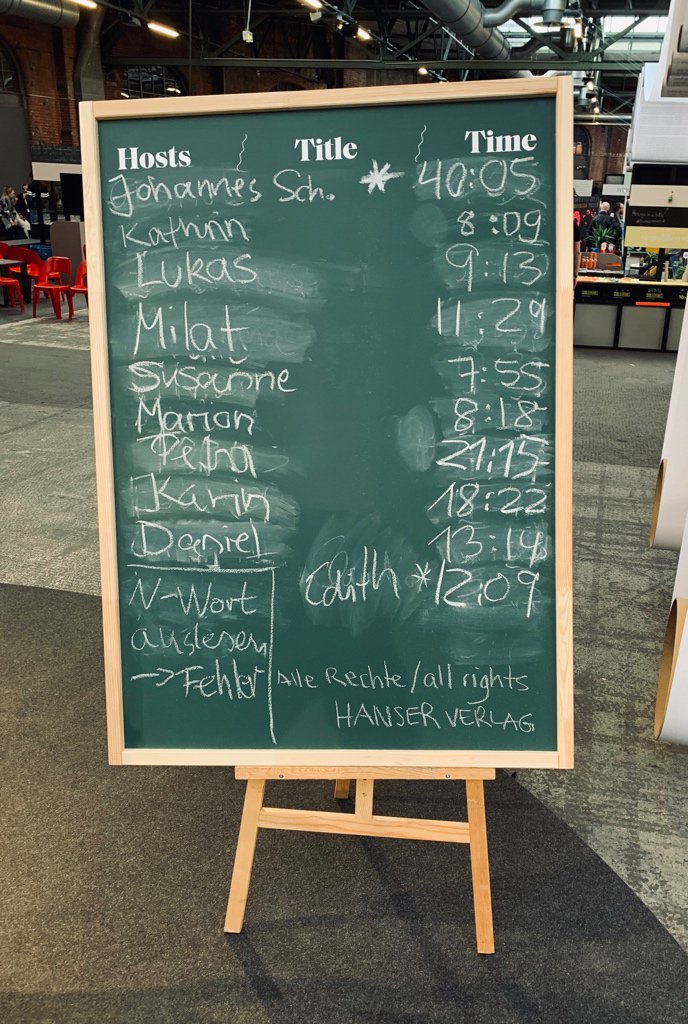 Hosts Title Time
Johannes Sch. * 40:05
Kathrin 8:09
Lukas 9:13
Milat 11:29
Susanne 7:55
Marion 8:18
Petra 21:15
Karin 18:22
Daniel 13:14
Edith *12,09
N-Wort
auslesen
->Fehler
Alle Rechte/all rights
HANSER VERLAG